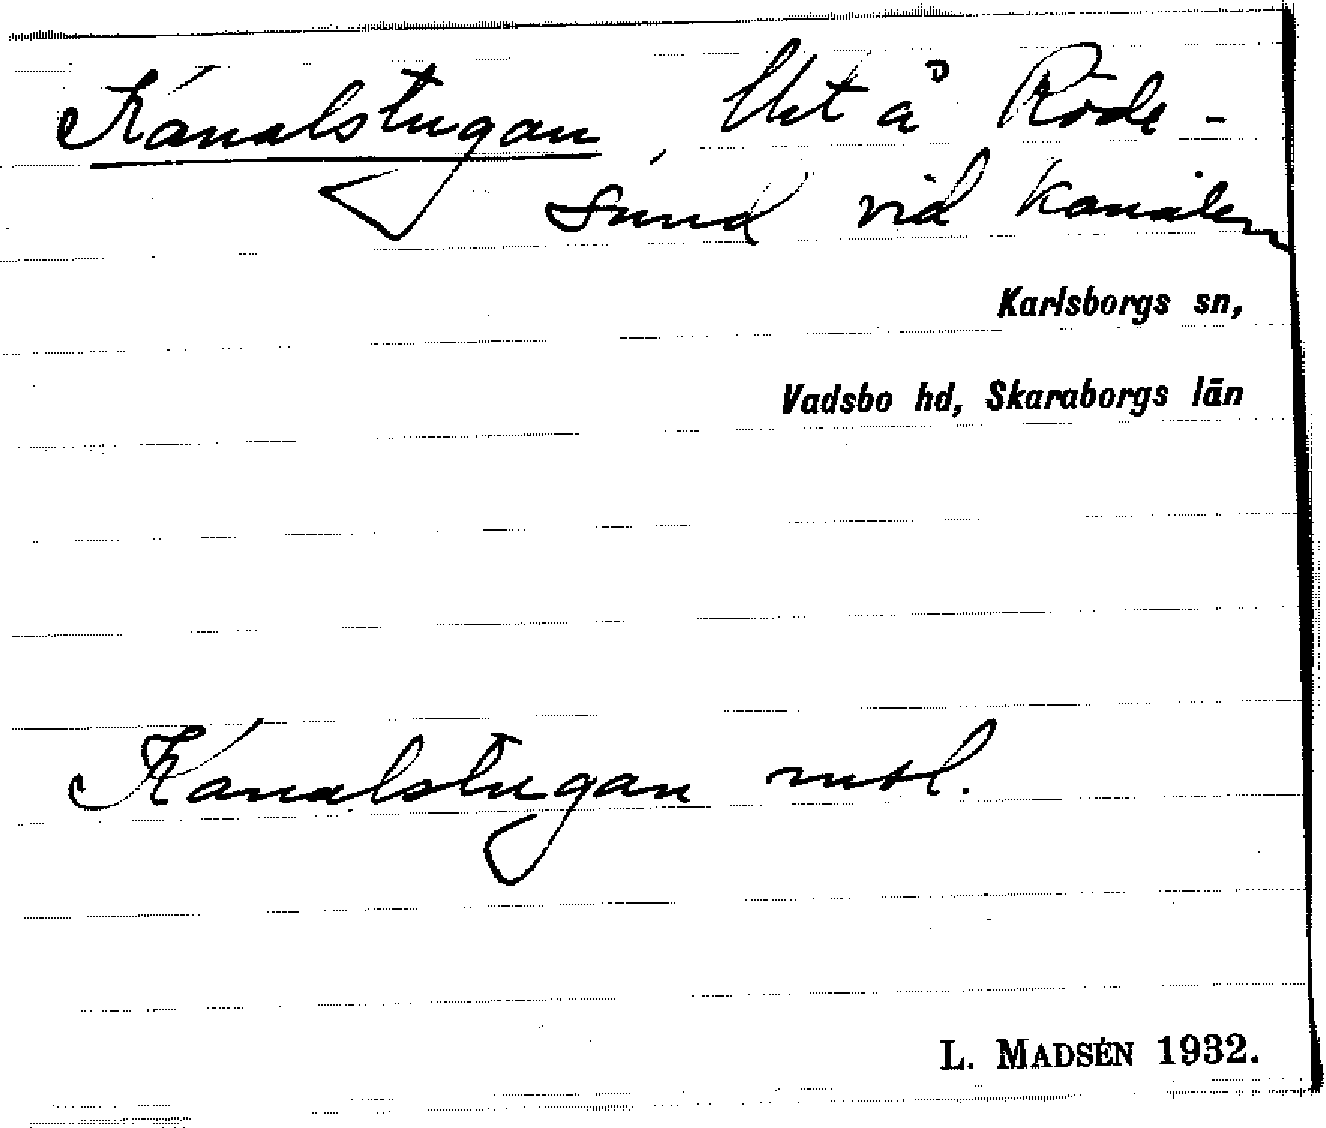 Kanalstugan, lht å Röde-
sund vid kanalen
Karlsborgs sn,
Vadsbo hd, Skaraborgs län
Kanalstugan mtl.
L. MADSÉN 1932.